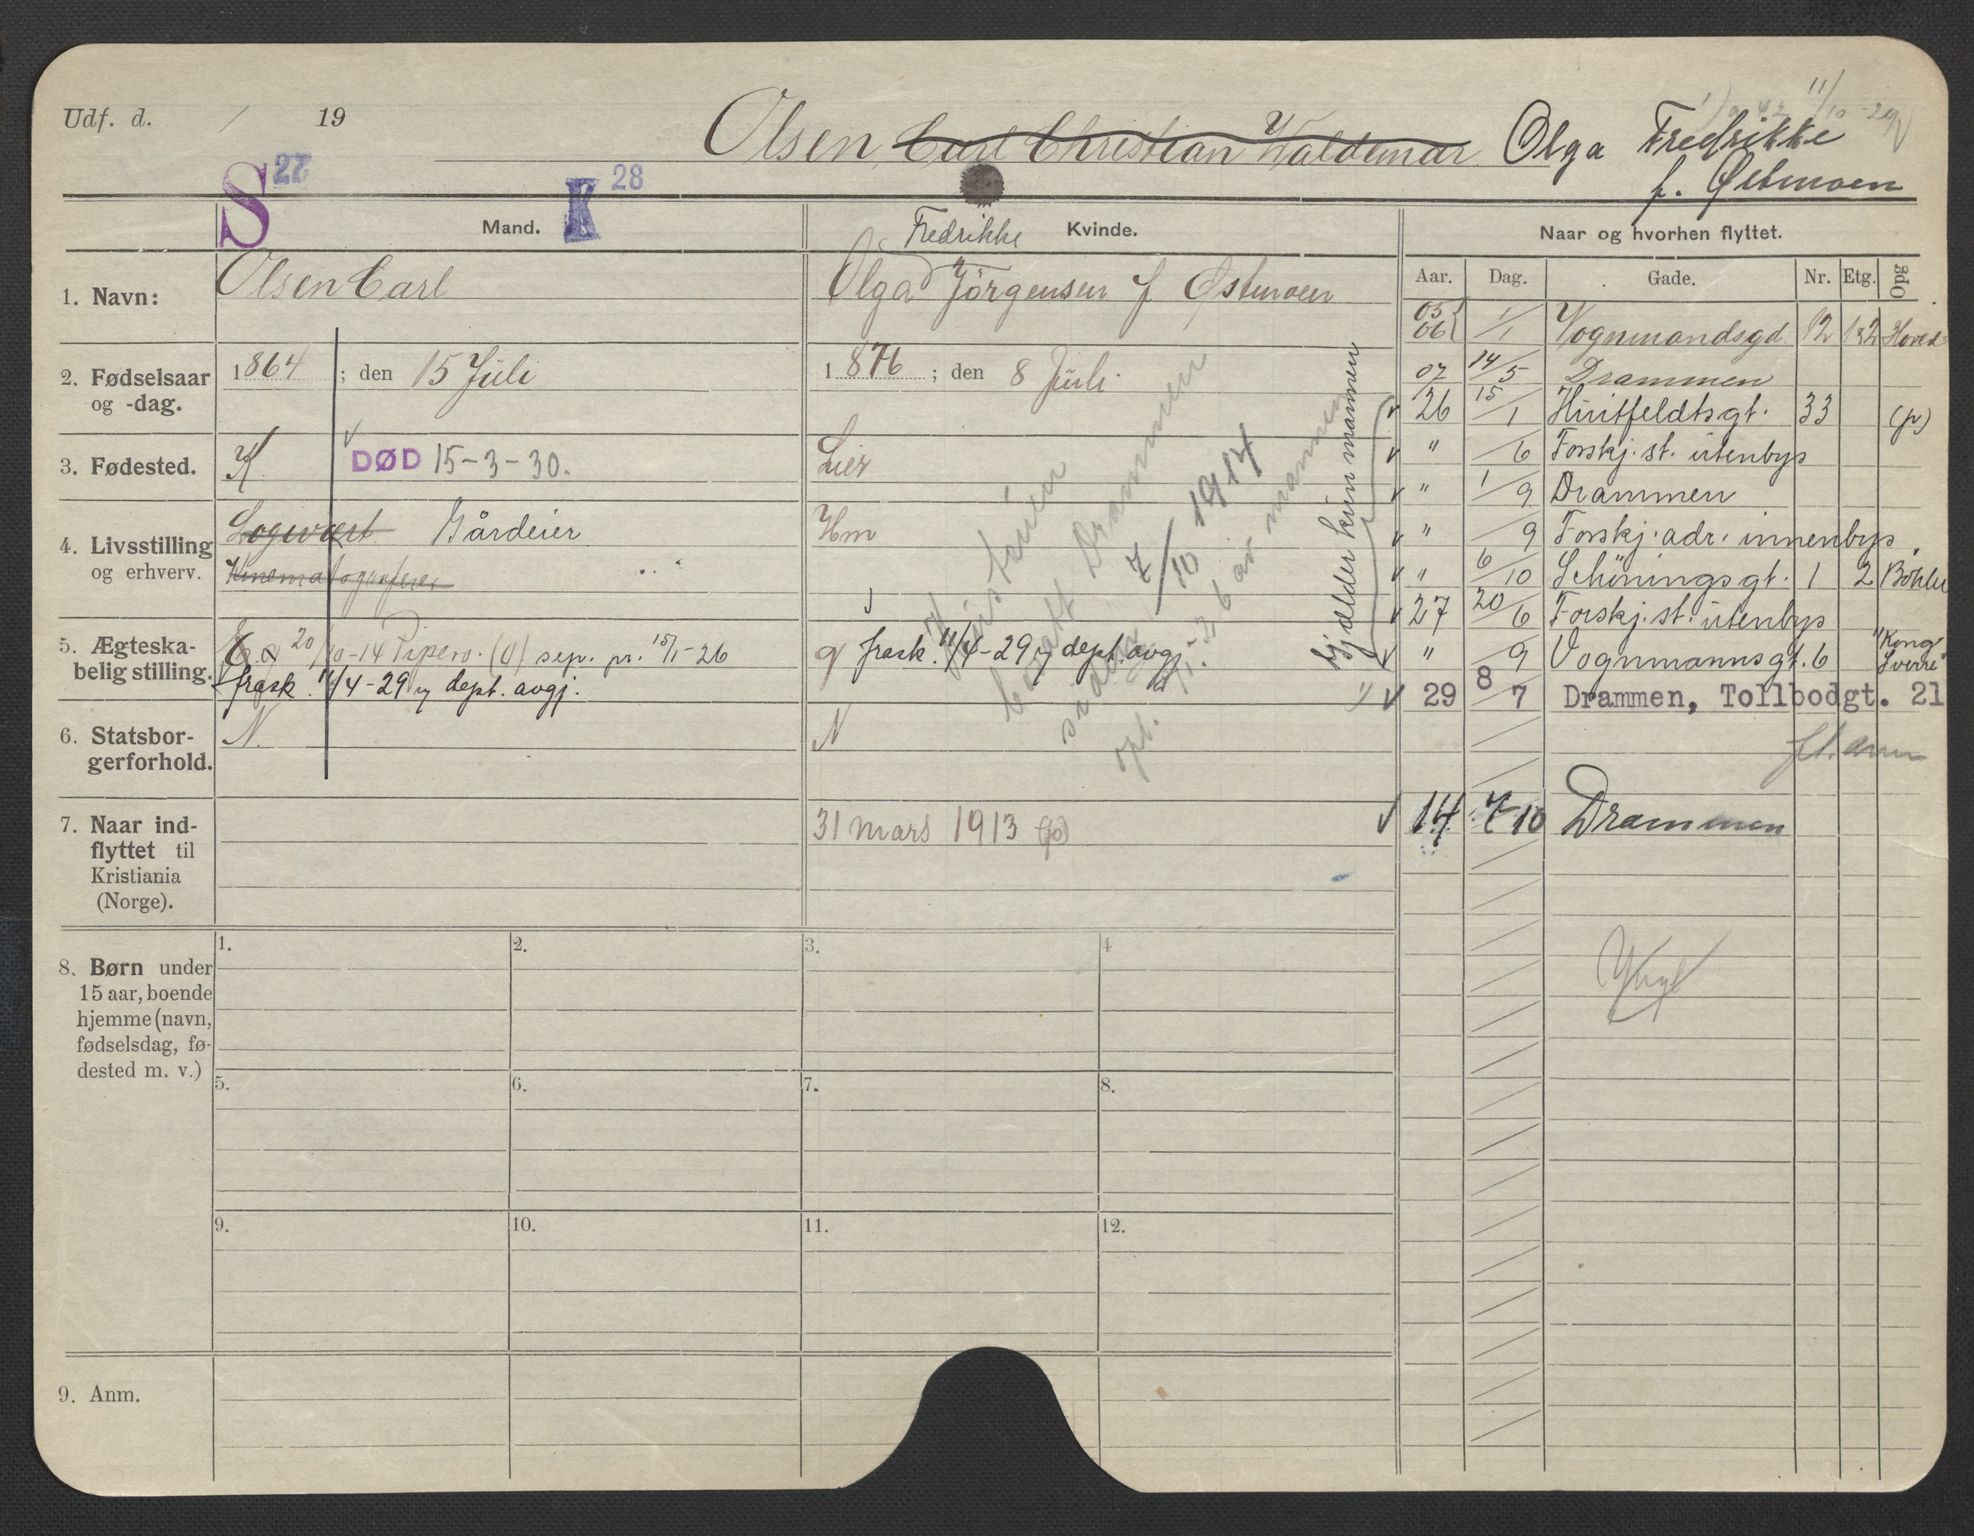 Udf. d. / 19
11/10-29
Olsen Carl Christian Waldemar Olga Fredrikke
f. Østmoen
S 27 K 28
Mand.
Fredrikke Kvinde.
Naar og hvorhen flyttet.
Aar. Dag. Gade. Nr. Etg. Opg
1. Navn: Olsen Carl
Olga Jörgensen f Østmoen
2. Fødselsaar og -dag. 1864 ; den 15 Juli
1876 ; den 8 Juli
3. Fødested. K. DØD 15-3-30.
Lier
4. Livsstilling og erhverv. Logivært Gårdeier
Kinematografeier
Hm
5. Ægteska-
belig stilling.
E. G 20/10-14 Piperv. (U) sep. pr. 15/1-26
frask. 11/4-29 dept. avgj.
g frask. 11/4-29 dept. avgj.
6. Statsbor-
gerforhold.
N.
N
7. Naar ind-
flyttet til
Kristiania
(Norge).
31 mars 1913 (fo)
8. Børn under
15 aar, boende
hjemme (navn,
fødselsdag, fø-
dested m. v.)
1. 2. 3. 4
5. 6. 7. 8.
9. 10. 11. 12.
9. Anm.
bosatt Drammen
siden 7/10 1914
opl. 15-1-26 av mannen
gjælder kun mannen
05 06 1/1 Vognmandsgd 12 1&2 Hoved
07 14/5 Drammen
26 15/1 Huitfeldtsgt. 33 (fr)
" /6 Forskj. st. utenbys
" 1/9 Drammen
" /9 Forskj. adr. innenbys.
" 6/10 Schöningsgt. 1 2 Böhler
27 20/6 Forskj. st. utenbys
" /9 Vognmannsgt. 6 "Kong Sverre"
29 8/7 Drammen, Tollbodgt. 21
14 7-10 Drammen